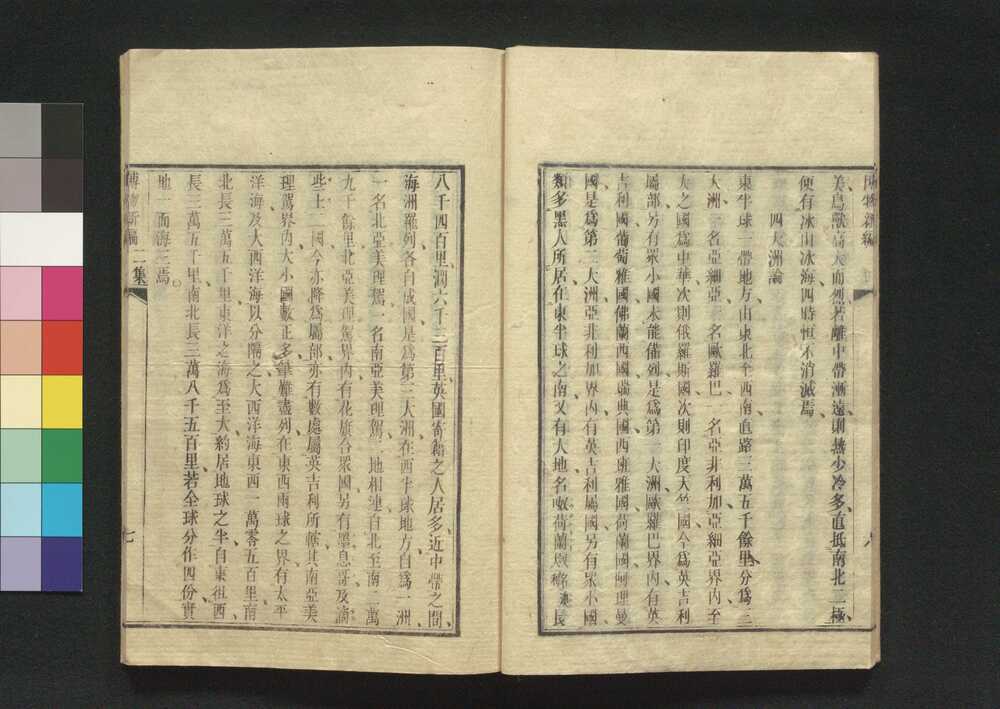 美鳥獸奇大而烈若離中帶漸遠則熱少冷多直抵南北二極
便有冰山冰海四時恒不消滅焉
四大洲論
東半球一帶地方由東北至西南直路三萬五千餘里分爲三
大洲一名亞細亞一名歐羅巴一名亞非利加亞細亞界內至
大之國爲中華次則俄羅斯國次則印度天竺國今爲英吉利
屬部另有眾小國未能備列是爲第一大洲歐羅巴界內有英
吉利國葡萄雅國佛蘭西國瑞典國西班雅國荷蘭國阿理曼
國是爲第二大洲亞非利加界內有英吉利屬國另有眾小國
類多黑人所居在東半球之南又有人地名
八千四百里濶六千三百里英國寄籍之人居多近中帶之間
海洲羅列各自成國是爲第三大洲在西半球地方自爲一洲
一名北亞美理駕一名南亞美理駕地相連自北至南二萬
九千餘里北亞美理駕界內有花旗合眾國另有墨息哥及
些上二國今亦降爲屬部亦有數處屬英吉利所轄其南亞美
理駕界內大小國數正多筆難盡列在東西兩球之界有太平
洋海及大西洋海以分隔之大西洋海東西一萬零五百里南
北長三萬五千里東洋之海爲至大約居地球之半自東徂西
長三萬五千里南北長三萬八千五百里若全球分作四份實
地一而海三焉
博物新編 二集 七